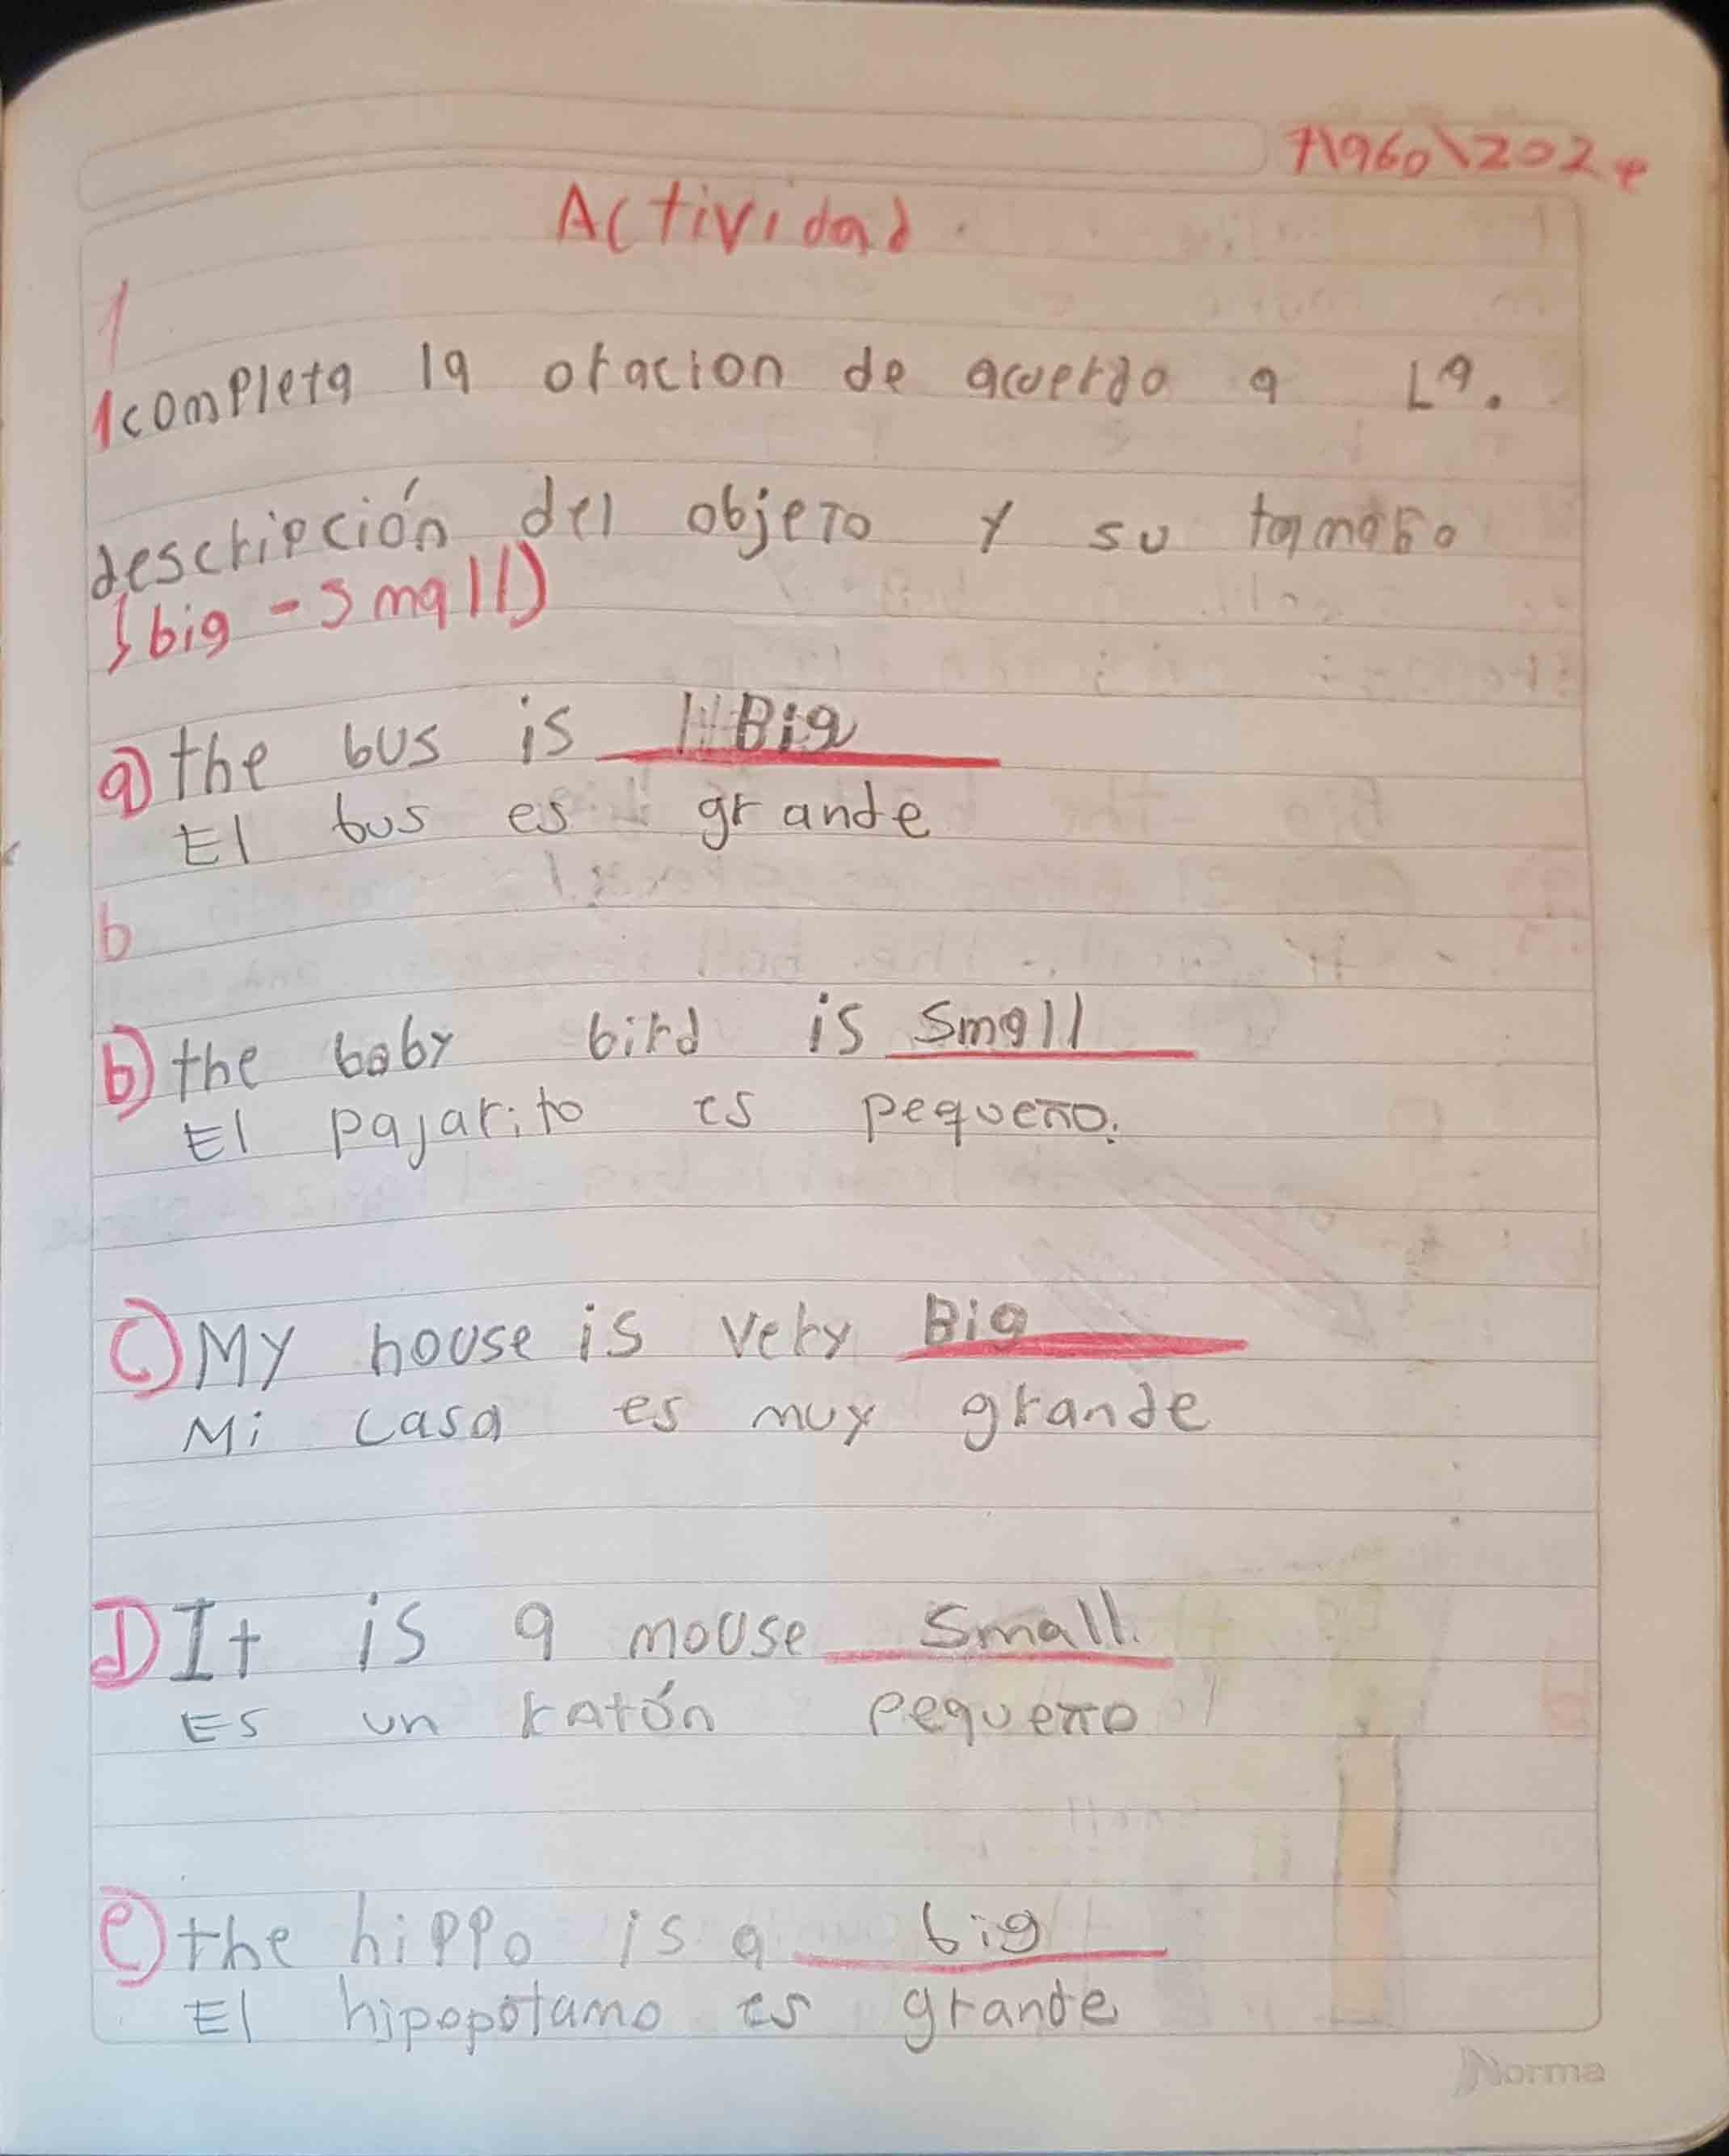 7\ago\2024
Actividad.
1
1 completa la oracion de acuerdo a La.
descripción del objeto y su tamaño
(big - small)
a) the bus is Big
El bus es grande
b
b) the baby bird is Small
El pajarito es pequeño.
C) My house is very Big
Mi casa es muy grande
D It is a mouse Small.
Es un ratón pequeño
e) the hippo is a big
El hipopotamo es grande
Norma